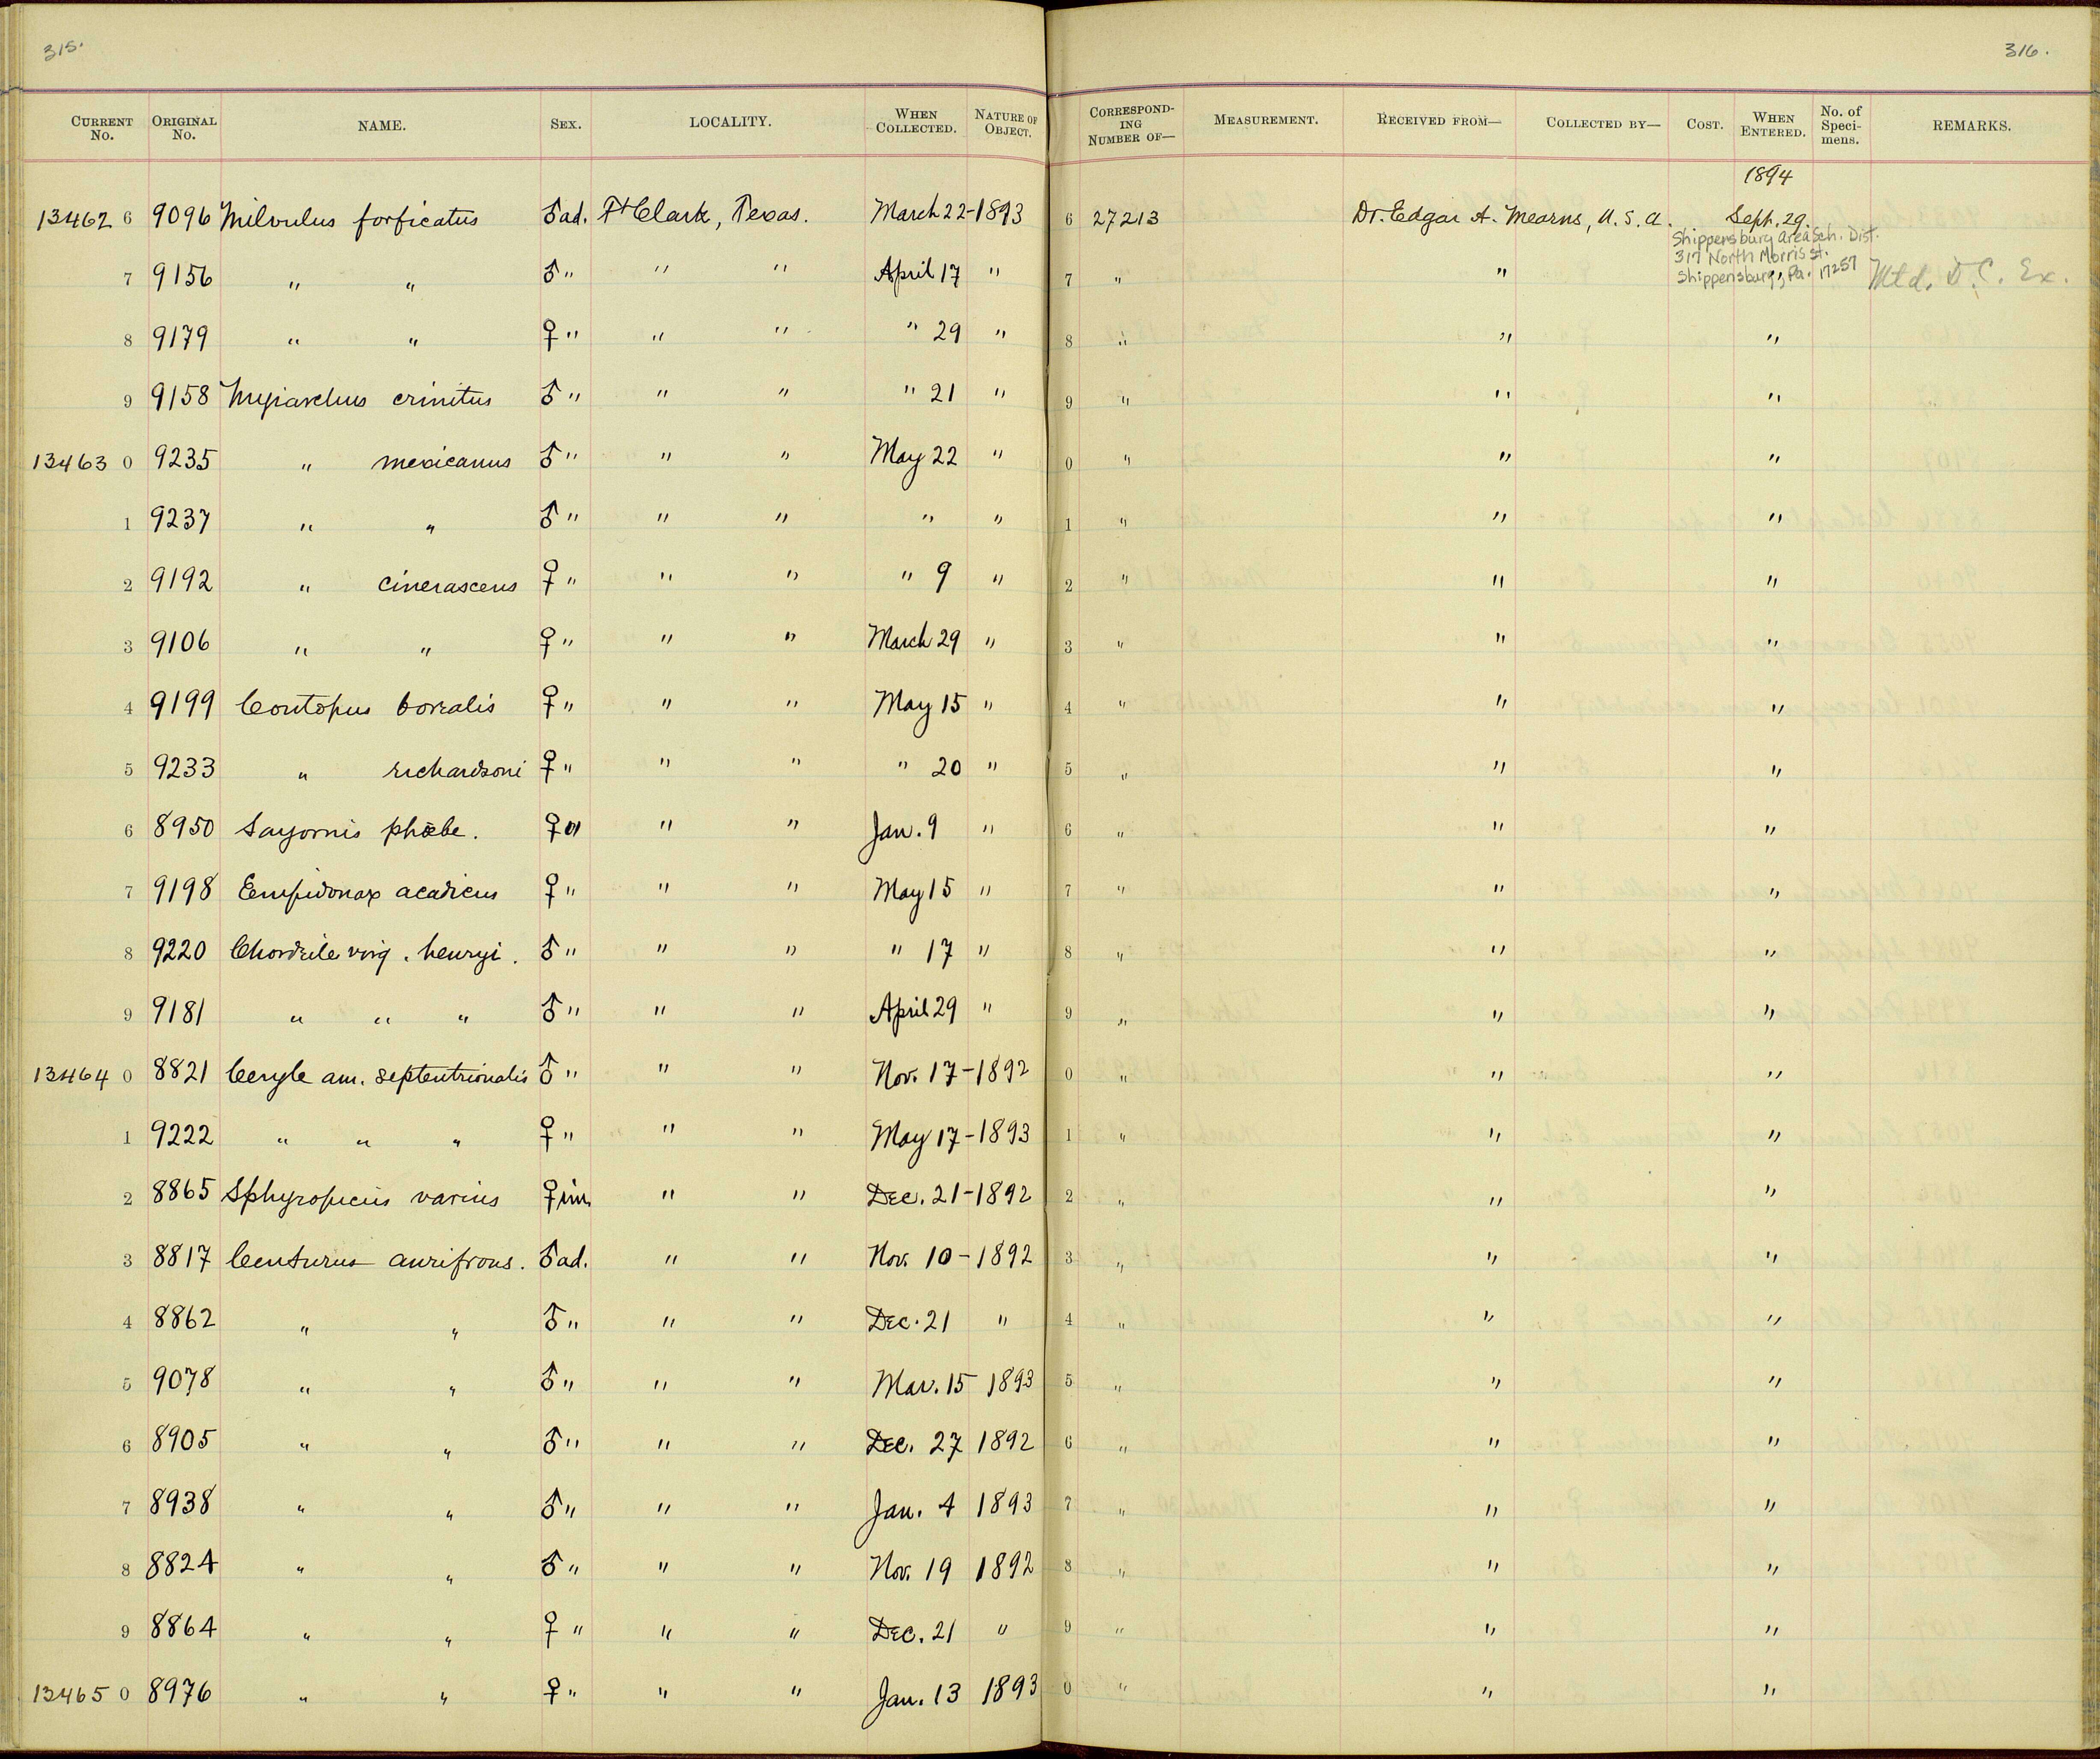 315.
316.
CURRENT No. ORIGINAL No. NAME. SEX. LOCALITY. WHEN COLLECTED. NATURE OF OBJECT. CORRESPONDING NUMBER OF— MEASUREMENT. RECEIVED FROM— COLLECTED BY— COST. WHEN ENTERED. No. of Specimens. REMARKS.
1894
13462 6 9096 Milvulus forficatus ♂ ad. Ft Clark, Texas. March 22-1893 6 27213 Dr. Edgar A. Mearns, U.S.A. Sept. 29.
Shippensburg Area Sch. Dist.
317 North Morris St.
Shippensburg, Pa. 17257
7 9156 " " ♂ " " " April 17 " 7 " " " Mtd. D.C. Ex.
8 9179 " " ♀ " " " " 29 " 8 " " "
9 9158 Myiarchus crinitus ♂ " " " " 21 " 9 " " "
13463 0 9235 " mexicanus ♂ " " " May 22 " 0 " " "
1 9237 " " ♂ " " " " " 1 " " "
2 9192 " cinerascens ♀ " " " " 9 " 2 " " "
3 9106 " " ♀ " " " March 29 " 3 " " "
4 9199 Contopus borealis ♀ " " " May 15 " 4 " " "
5 9233 " richardsoni ♀ " " " " 20 " 5 " " "
6 8950 Sayornis phœbe. ♀ " " " Jan. 9 " 6 " " "
7 9198 Empidonax acadicus ♀ " " " May 15 " 7 " " "
8 9220 Chordeile virg. henryi. ♂ " " " " 17 " 8 " " "
9 9181 " " " ♂ " " " April 29 " 9 " " "
13464 0 8821 Ceryle am. septentrionalis ♂ " " " Nov. 17-1892 0 " " "
1 9222 " " " ♀ " " " May 17-1893 1 " " "
2 8865 Sphyropicus varius ♀ im. " " Dec. 21-1892 2 " " "
3 8817 Centurus aurifrons. ♂ ad. " " Nov. 10-1892 3 " " "
4 8862 " " ♂ " " " Dec. 21 " 4 " " "
5 9078 " " ♂ " " " Mar. 15 1893 5 " " "
6 8905 " " ♂ " " " Dec. 27 1892 6 " " "
7 8938 " " ♂ " " " Jan. 4 1893 7 " " "
8 8824 " " ♂ " " " Nov. 19 1892 8 " " "
9 8864 " " ♀ " " " Dec. 21 " 9 " " "
13465 0 8976 " " ♀ " " " Jan. 13 1893 0 " " "